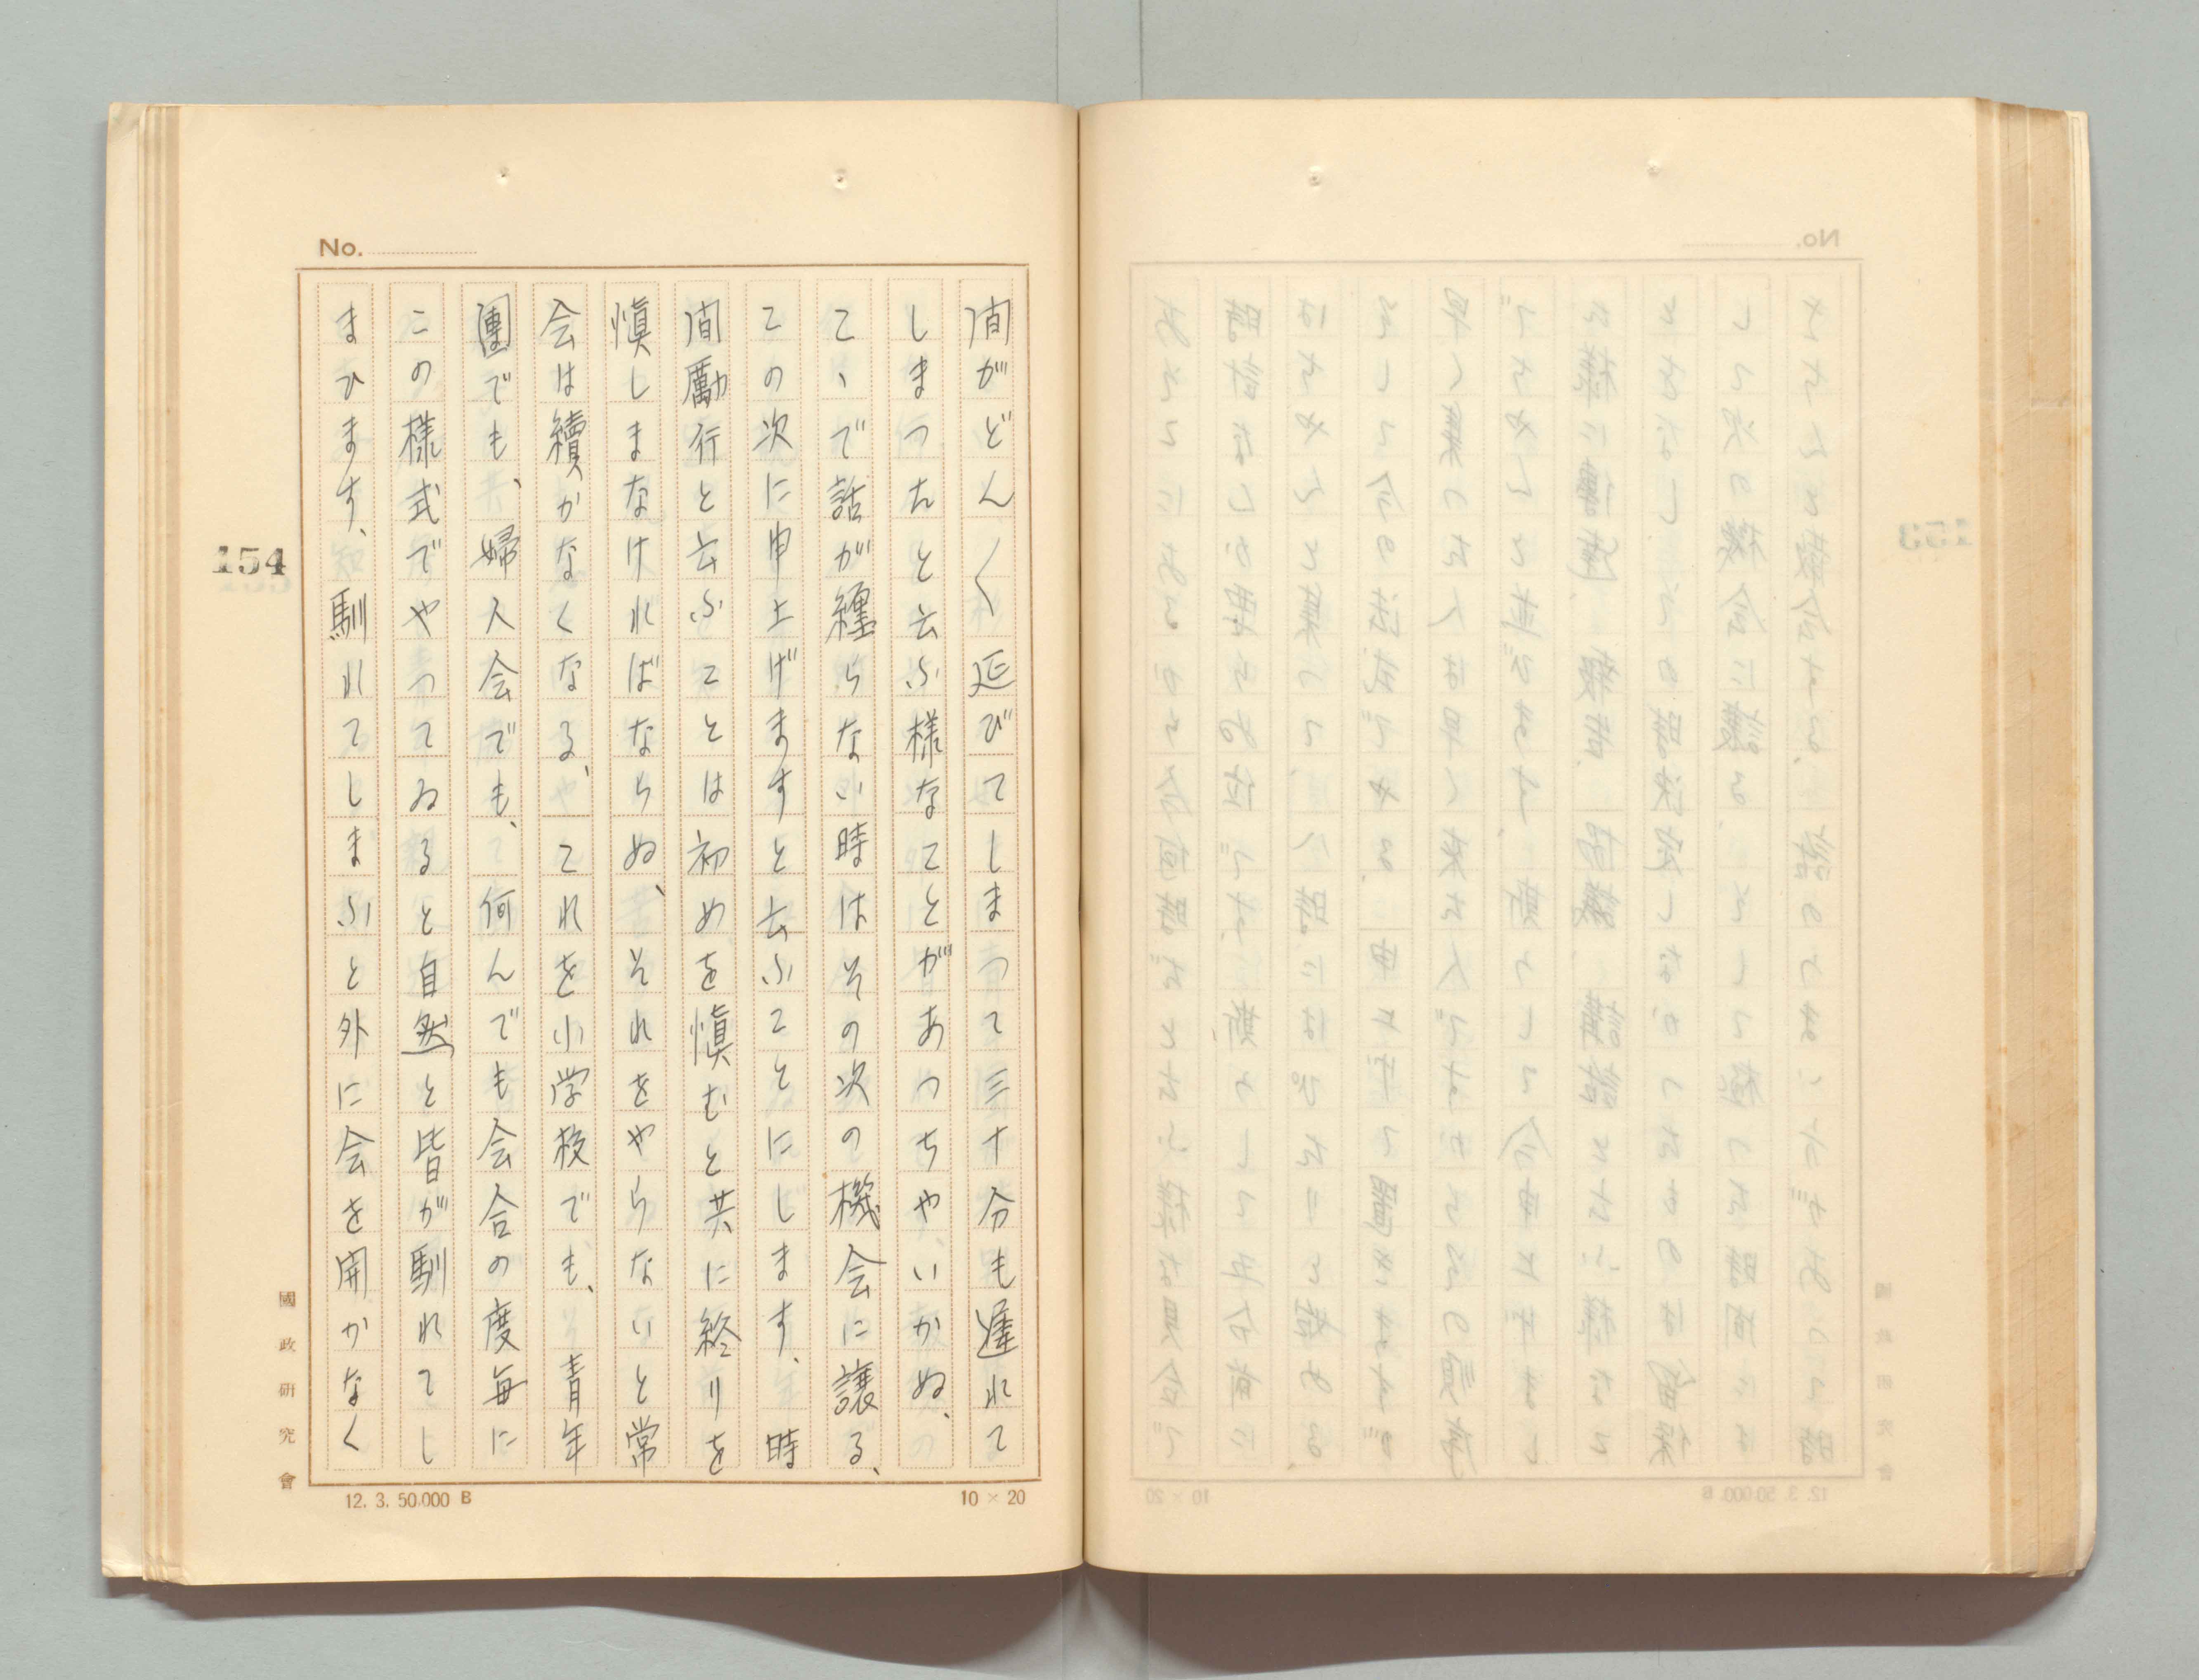 No.
間がどん〱延びてしまつて三十分も遅れて
しまつたと云ふ様なことがあつちやいかぬ、
こゝで話が纒らない時はその次の機会に譲る、
この次に申上げますと云ふことにします、時
間励行と云ふことは初めを慎むと共に終りを
慎しまなければならぬ、それをやらないと常
会は續かなくなる、これを小学校でも、青年
團でも、婦人会でも、何んでも会合の度毎に
この様式でやつてゐると自然と皆が馴れてし
まひます、馴れてしまふと外に会を開かなく
154
國政研究會
12. 3. 50.000 B
10 × 20